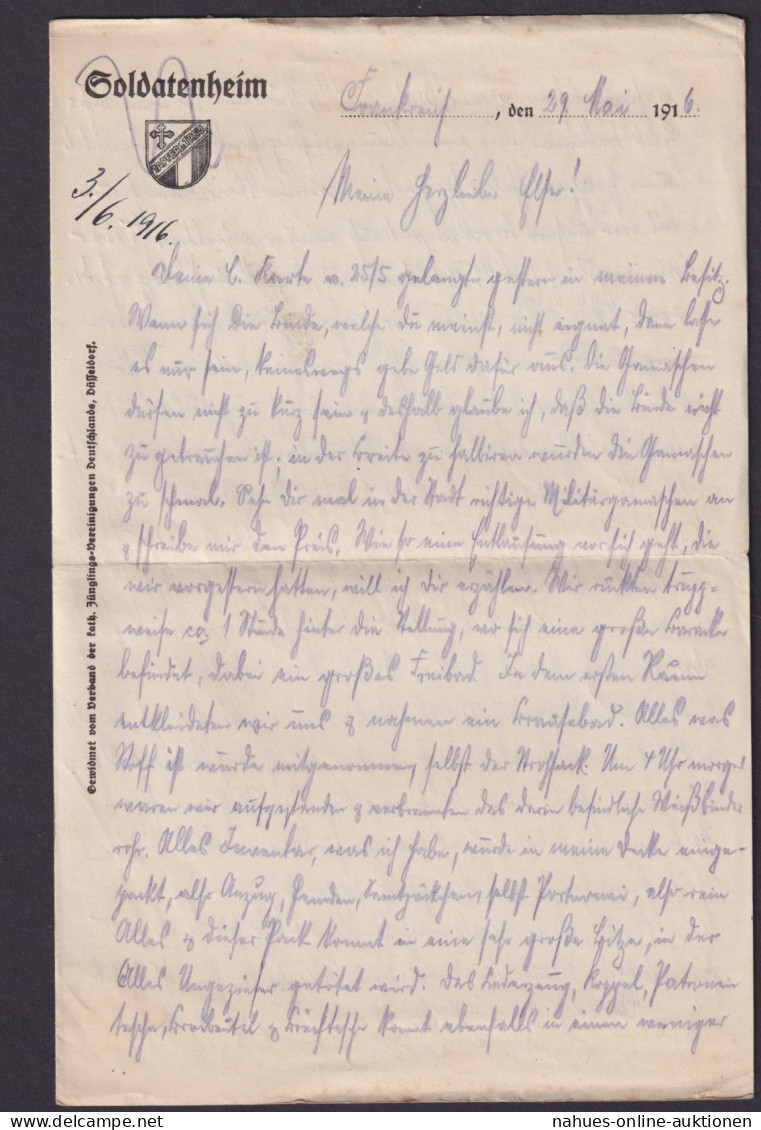 Soldatenheim
Frankreich, den 29. Mai 1916.
3./6. 1916.
Meine herzliebe Else!
Deine l. Karte v. 25/5 gelangte gestern in meinen Besitz.
Wenn sich die Binde, welche du meinst, nicht eignet, dann lasse
es nur sein, keineswegs gebe Geld dafür aus. Die Gamaschen
dürfen nicht zu kurz sein & deshalb glaube ich, daß die Binde nicht
zu gebrauchen ist; in der Breite zu halbieren würden die Gamaschen
zu schmal. Seh dir mal in der Stadt richtige Militärgamaschen an
& schreibe mir den Preis. Wie so eine Entlausung vor sich geht, die
wir vorgestern hatten, will ich dir erzählen. Wir rückten trupp-
weise ca 1 Stunde hinter die Stellung, wo sich eine große Baracke
befindet, dabei ein großes Freibad. In dem ersten Raum
entkleideten wir uns & nahmen ein Brausebad. Alles was
Stoff ist wurde mitgenommen, selbst der Strohsack. Um 4 Uhr morgens
waren wir aufgestanden & verbrannten das darin befindliche
rohr. Alles Inventar, was ich habe, wurde in meine Decke einge-
packt, also Anzug, Hemden, selbst Portemonnai, also rein
Alles & dieser Pack kommt in eine sehr große Hitze, in der
Alles Ungeziefer getötet wird. Das Lederzeug, Koppel, Patronen
tasche, Brodbeutel & kommt ebenfalls in einem weniger
Gewidmet vom Verband der kath. Jünglings-Vereinigungen Deutschlands, Düsseldorf.
nahues-online-auktionen